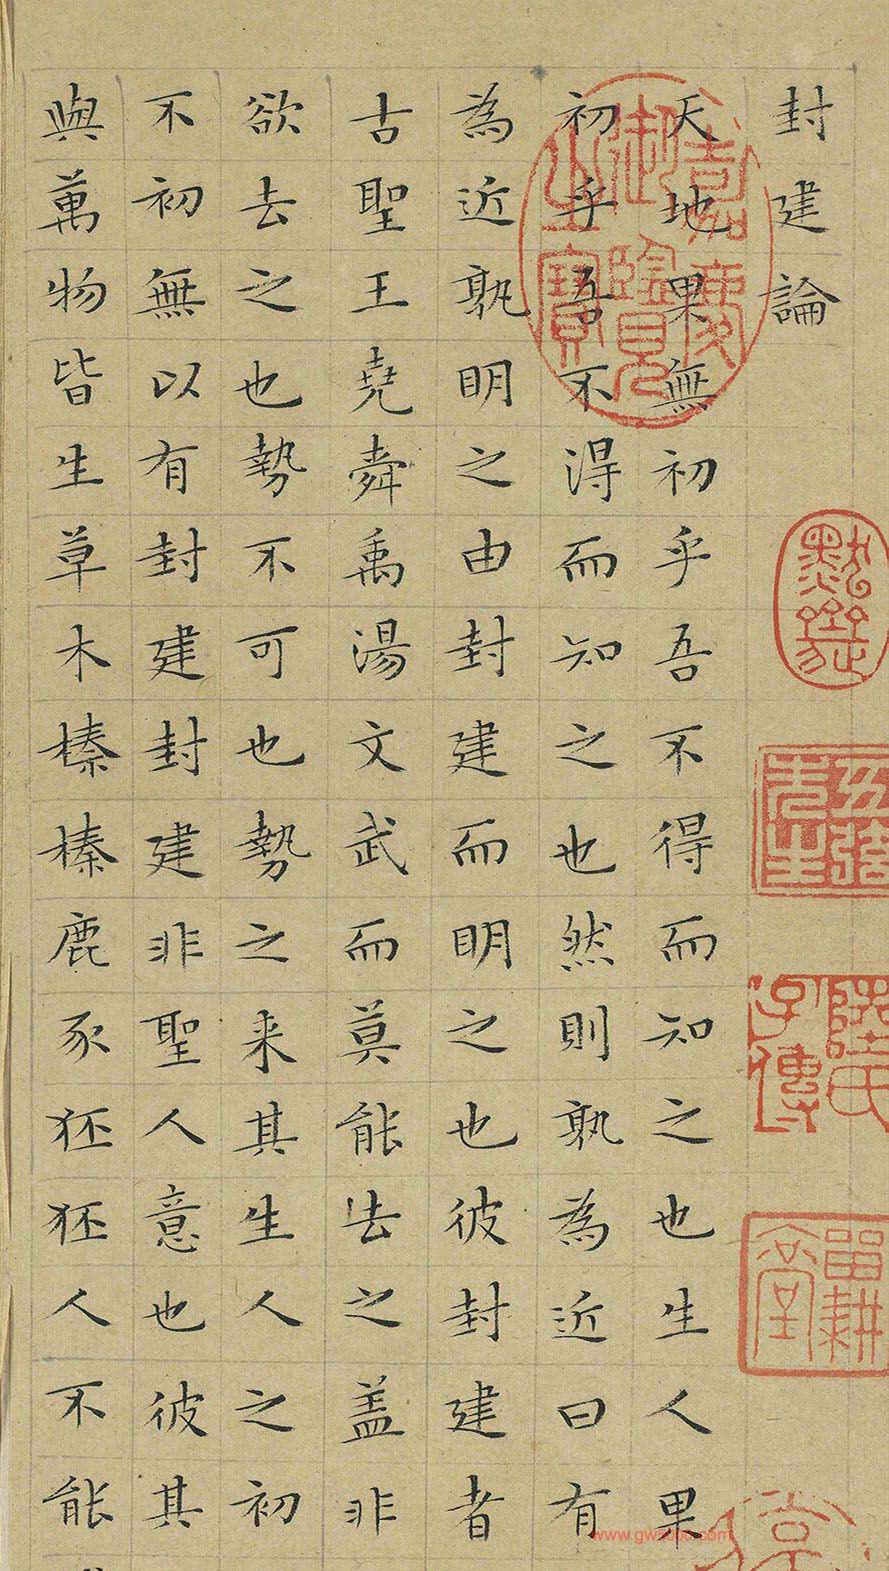 封建論
天地果無初乎吾不得而知之也生人果
初乎吾不得而知之也然則孰為近曰有
為近孰明之由封建而明之也彼封建者
古聖王堯舜禹湯文武而莫能去之盖非
欲去之也勢不可也勢之来其生人之初
不初無以有封建封建非聖人意也彼其
與萬物皆生草木榛榛鹿豕狉狉人不能
嘉慶御覽之寶
陸氏子傳
www.gw